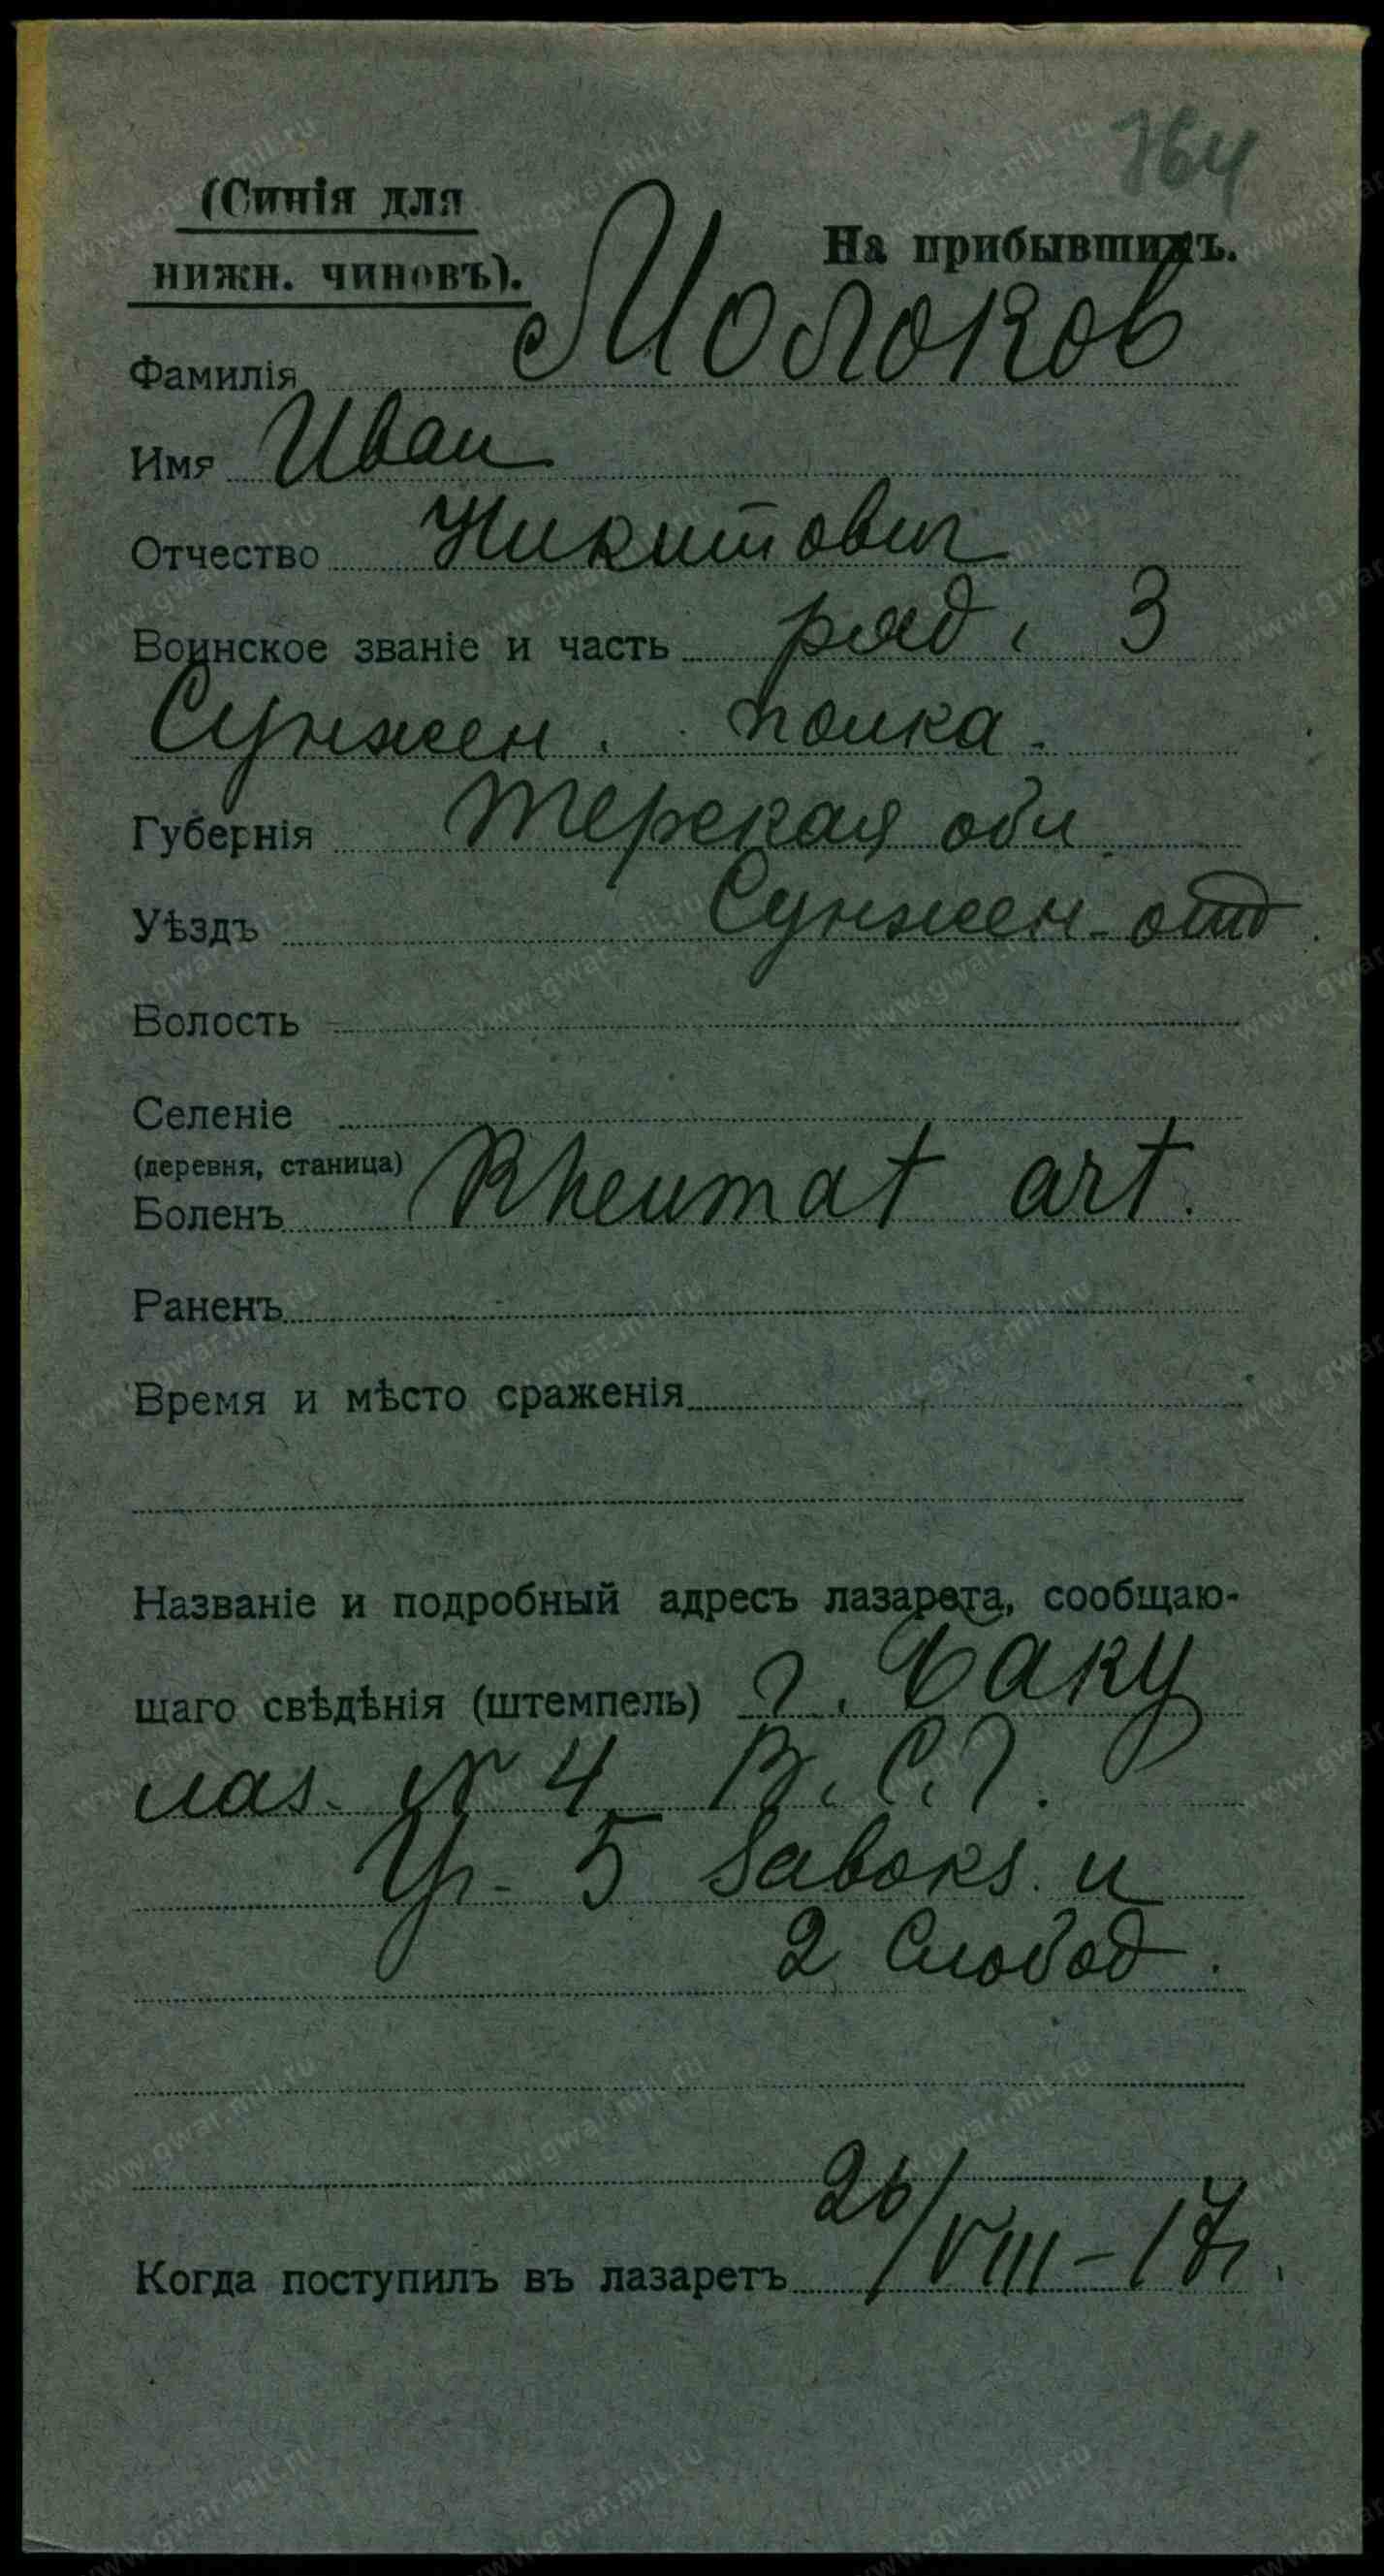 764
(Синія для
нижн. чиновъ).
На прибывшихъ.
Фамилія Молоков
Имя Иван
Отчество Никитович
Воинское званіе и часть ряд. 3
Сунжен. полка.
Губернія Терская обл
Уѣздъ Сунжен. отд.
Волость
Селеніе
(деревня, станица)
Боленъ Rheumat art.
Раненъ
Время и мѣсто сраженія
Названіе и подробный адресъ лазарета, сообщаю-
щаго свѣдѣнія (штемпель) г. Баку
лаз. № 4 В. С. Г.
Уг. 5 Завокз. и
2 Слобод.
Когда поступилъ въ лазаретъ 26/VIII-17г.